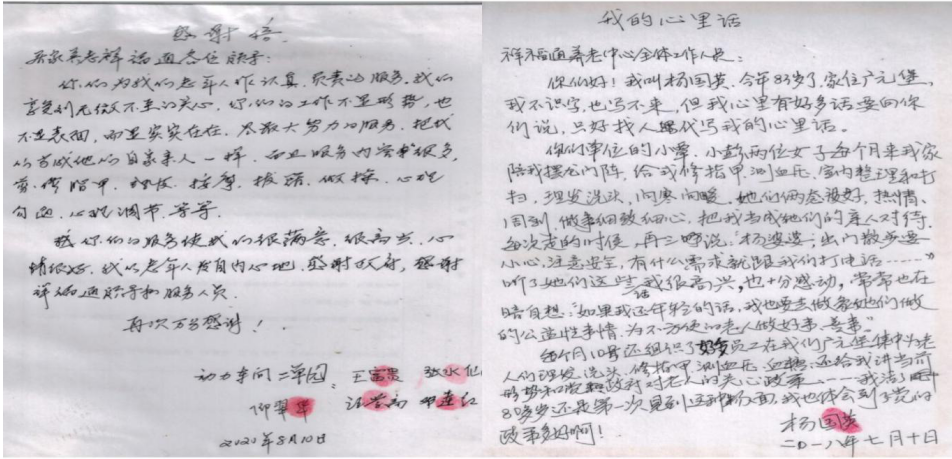 感谢信
你们为我们老年人作认真、负责的服务，我们
享受到无微不至的关心，你们的工作不是形势，也
不是表面，而是实实在在、尽最大努力的服务，把我
们当成他们自家亲人一样，而且服务内容很多，
剪修脚甲、理发、按摩、
心理调节、等等。
你们的服务使我们很满意、很高兴、心
情很好，我们老年人发自内心地感谢政府，感谢
祥福通领导和服务人员。
再次万分感谢！
动力车间二单园
2020年8月10日
我的心里话
祥福通养老中心全体工作人员：
你们好！我叫杨国英，今年83岁了，家住广元堡，
我不识字，也写不来，但我心里有好多话要向你
们说，只好找人代写我的心里话。
你们单位的小覃、小彭两位女子每个月来我家
陪我摆龙门阵，给我修指甲、测血压，室内整理和打
扫，理发洗头，问寒问暖，她们俩态度好，热情、
周到，做事细致细心，把我当成她们的亲人对待，
每次走的时候，再三嘱说，“杨婆婆，出门散步要
小心，注意安全，有什么需求就跟我们打电话……”
听了她们这些话我很高兴，也十分感动，常常也在
暗自想：“如果我还年轻的话，我也要去做象她们做
的公益性事情，为不方便的老人做好事、善事。”
每个月10号还组织了好多员工在我们广元堡集中为老
人们理发、洗头、修指甲、测血压、血糖，还给我讲当前
形势和党和政府对老人的关心政策……我活了
80多岁还是第一次见到这种场面，我也体会到了党的
政策多好啊！
杨国英
二〇一八年七月十日